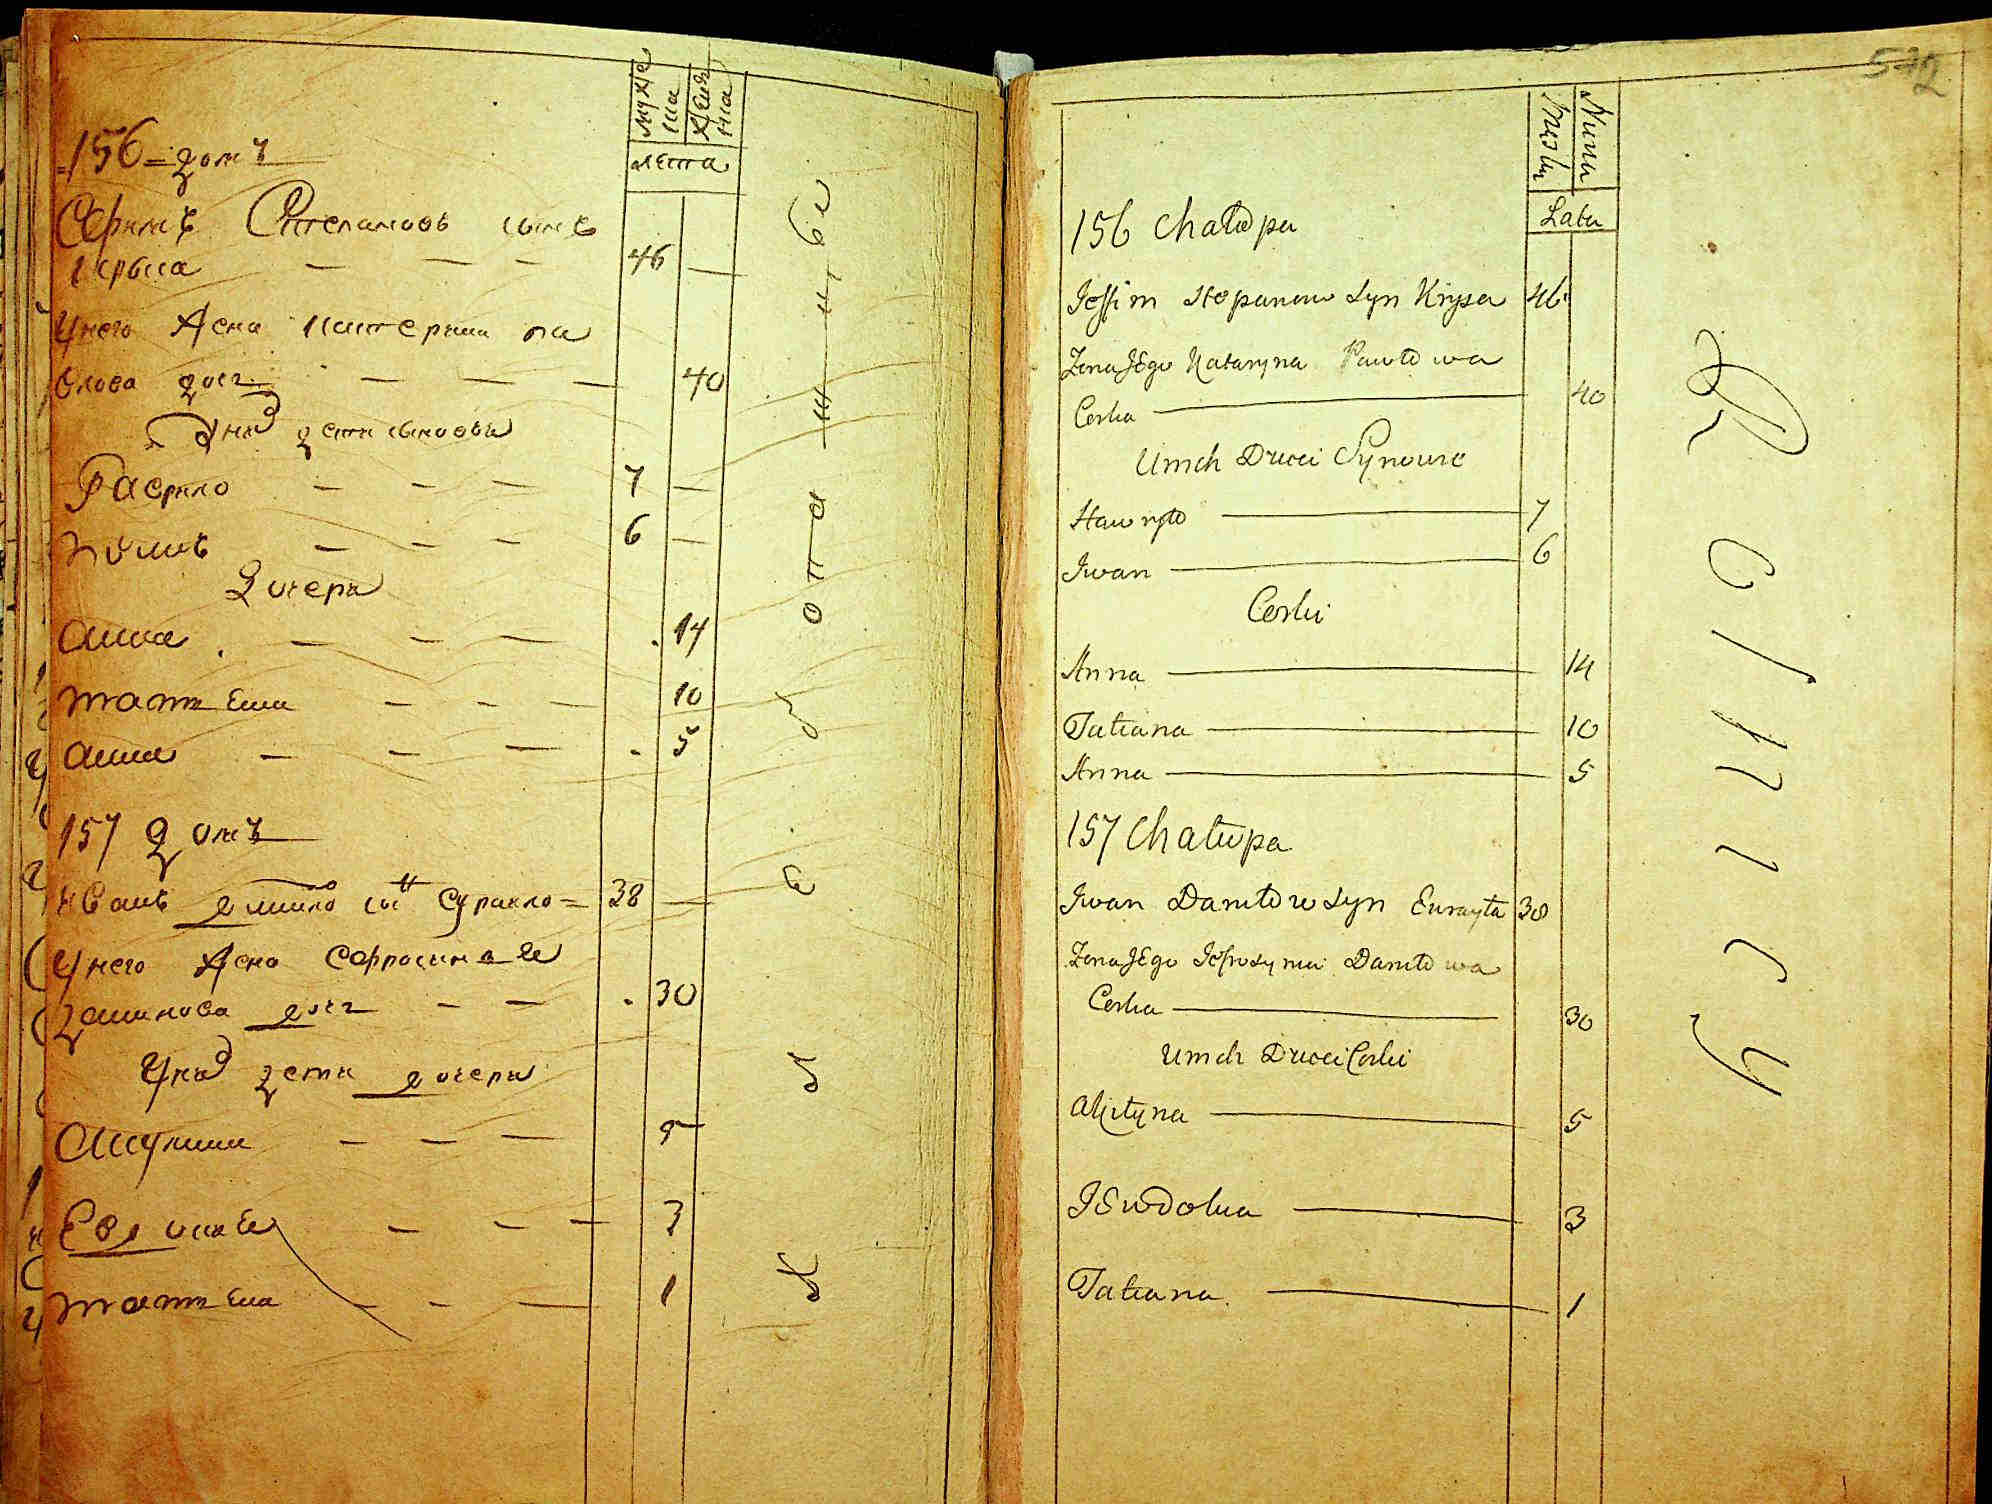 мужеска
женска
лета
156 домъ
Ефимъ Степановъ сынъ
Крыса — — — 46 —
Унего жена Катерина па
влова доч — — — 40
Уних дети сыновья
Гаврило — — — 7 —
Иванъ — — — 6 —
Дочери
Анна — — — 14
Татиана — — — 10
Анна — — — 5
157 домъ
Иванъ сынъ 38 —
Унего жена Ефросиниа
Данилова доч — — 30
Уних дети дочери
Акулина — — — 5
Евдокиа — — — 3
Татиана — — — 1
572
Męska
Lata
156 Chałupa
Jeffim Stepanow Syn Krysa 46
Zona JEgo Kataryna Pawłowa
Corka 40
Umch Dzieci Synowie
Hawryło 7
Iwan 6
Corki
Anna 14
Tatiana 10
Anna 5
157 Chałupa
Iwan Daniłow Syn 38
Zona JEgo Daniłowa
Corka 30
Umch Dzieci Corki
Akilyna 5
JEwdokia 3
Tatiana 1
Rolnicy